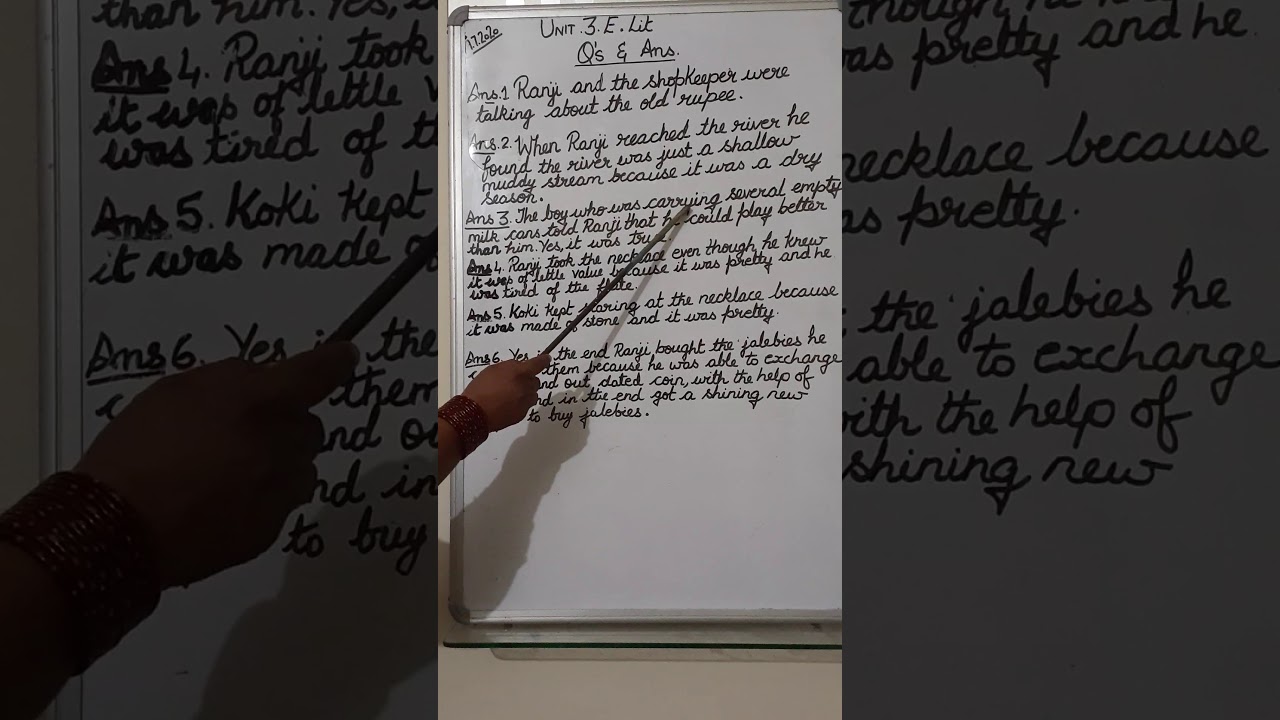 UNIT.3.E.Lit
Q's & Ans.
Ans.1 Ranji and the shopkeeper were
talking about the old rupee.
Ans.2. When Ranji reached the river he
found the river was just a shallow
muddy stream because it was a dry
season.
Ans 3. The boy who was carrying several empty
milk cans told Ranji that he could play better
than him. Yes, it was
Ans 4. Ranji took the necklace even though he knew
it was of lettle value because it was pretty and he
was tired of the
Ans 5. Koki kept staring at the necklace because
it was made of stone and it was pretty.
Ans 6. Yes in the end Ranji bought the jalebies he
them because he was able to exchange
out dated coin, with the help of
in the end got a shining new
to buy jalebies.